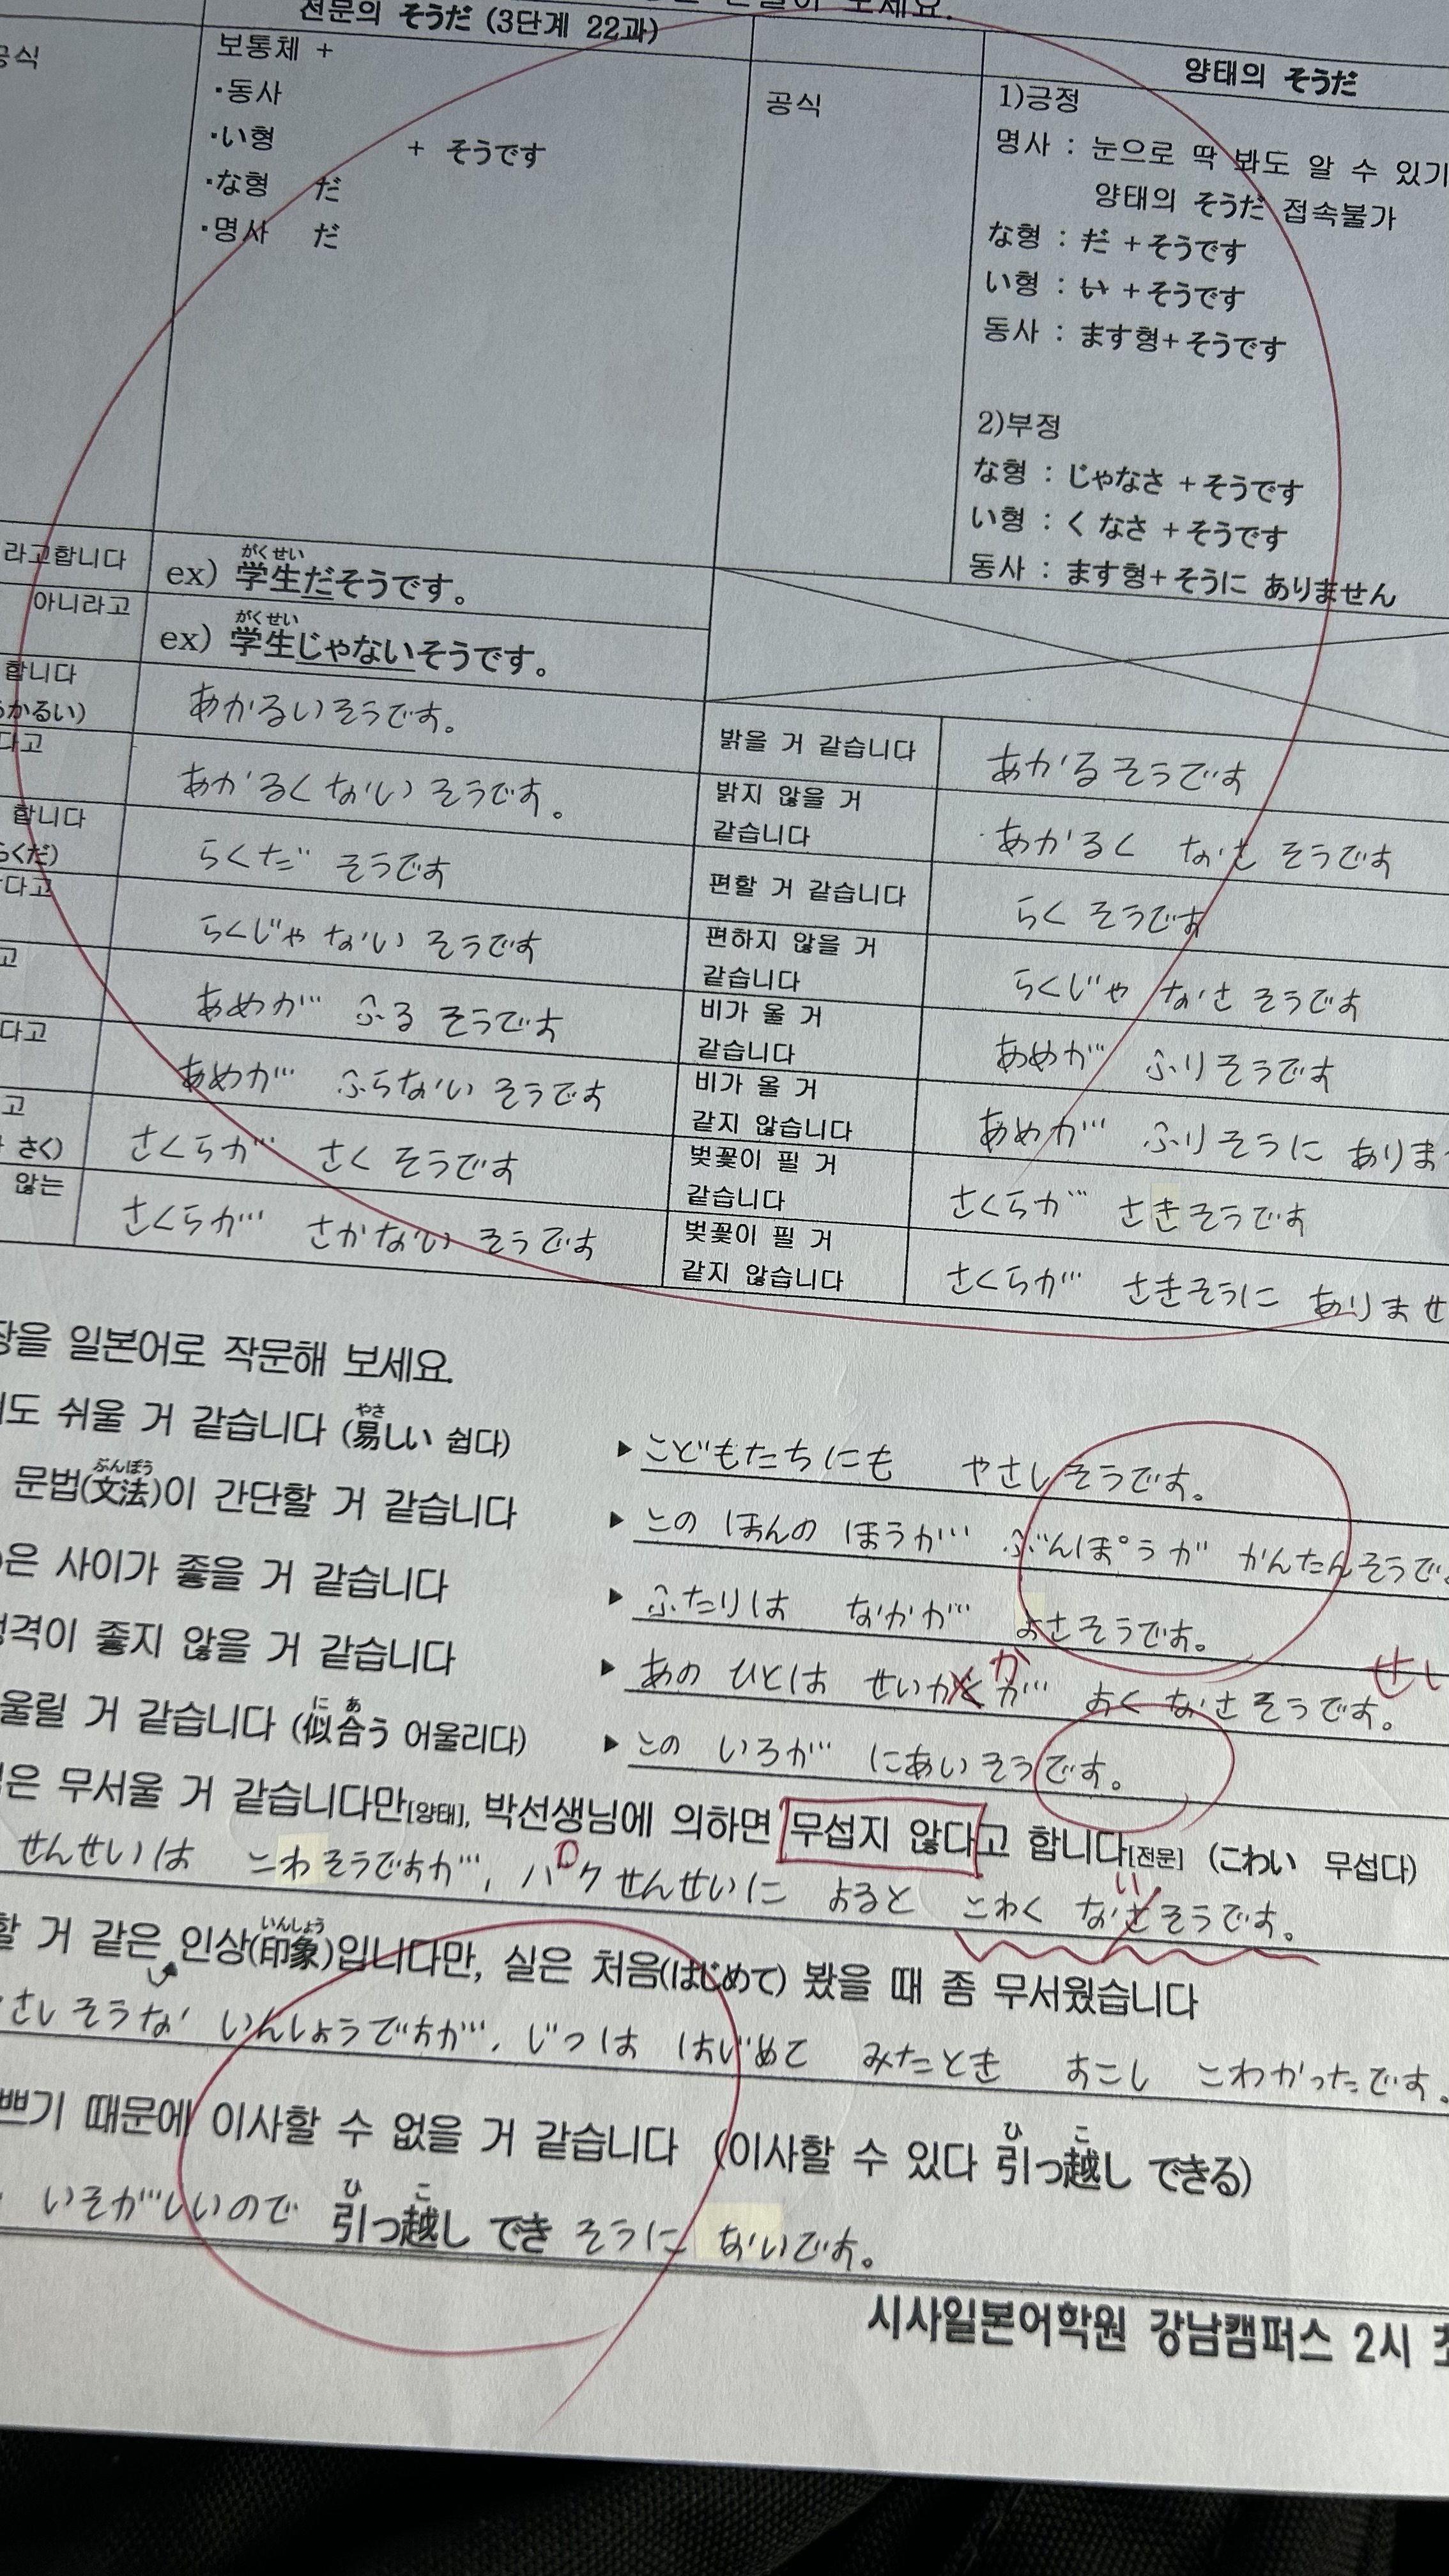 보세요.
전문의 そうだ (3단계 22과)
양태의 そうだ
공식
보통체 +
・동사
・い형 + そうです
・な형 だ
・명사 だ
공식
1)긍정
명사 : 눈으로 딱 봐도 알 수 있기
양태의 そうだ 접속불가
な형 : だ +そうです
い형 : い +そうです
동사 : ます형+そうです
2)부정
な형 : じゃなさ +そうです
い형 : くなさ +そうです
동사 : ます형+そうに ありません
라고합니다
ex) 学生だそうです。
がくせい
아니라고
ex) 学生じゃないそうです。
がくせい
합니다
かるい)
あかるいそうです。
밝을 거 같습니다
あかるそうです
다고
あかるくない そうです。
밝지 않을 거
같습니다
あかるく なさ そうです
합니다
くだ)
らくだ そうです
편할 거 같습니다
らく そうです
다고
らくじゃ ない そうです
편하지 않을 거
같습니다
らくじゃ なさ そうです
고
あめが ふる そうです
비가 올 거
같습니다
あめが ふりそうです
다고
あめが ふらない そうです
비가 올 거
같지 않습니다
あめが ふりそうに ありま
고
さく)
さくらが さく そうです
벚꽃이 필 거
같습니다
さくらが さきそうです
않는
さくらが さかない そうです
벚꽃이 필 거
같지 않습니다
さくらが さきそうに ありませ
장을 일본어로 작문해 보세요.
도 쉬울 거 같습니다 (易しい 쉽다)
やさ
▶こどもたちにも やさしそうです。
문법(文法)이 간단할 거 같습니다
ぶんぽう
▶このほんのほうが ぶんぽうが かんたんそうで
은 사이가 좋을 거 같습니다
▶ふたりは なかが よさそうです。
성격이 좋지 않을 거 같습니다
▶あの ひとは せいかくが よくなさそうです。
か
せい
울릴 거 같습니다 (似合う 어울리다)
に あ
▶この いろが にあいそうです。
은 무서울 거 같습니다만[양태], 박선생님에 의하면 무섭지 않다고 합니다[전문] (こわい 무섭다)
せんせいは こわそうですが, パクせんせいに よると こわく なさそうです。
い
할 거 같은 인상(印象)입니다만, 실은 처음(はじめて) 봤을 때 좀 무서웠습니다
いんしょう
さしそうな いんしょうですが, じつは はじめて みたとき すこし こわかったです。
쁘기 때문에 이사할 수 없을 거 같습니다 (이사할 수 있다 引っ越し できる)
ひ こ
いそがしいので 引っ越し でき そうに ないです。
ひ こ
시사일본어학원 강남캠퍼스 2시